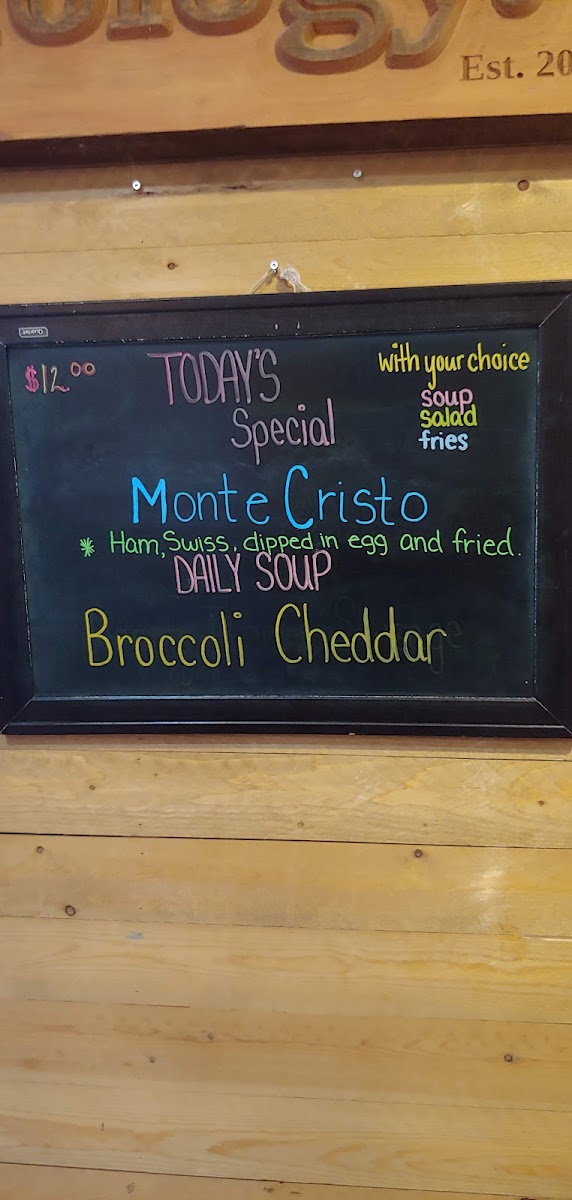 Est. 20
$12.00
TODAY'S
Special
with your choice
soup
salad
fries
Monte Cristo
* Ham, Swiss, dipped in egg and fried.
DAILY SOUP
Broccoli Cheddar